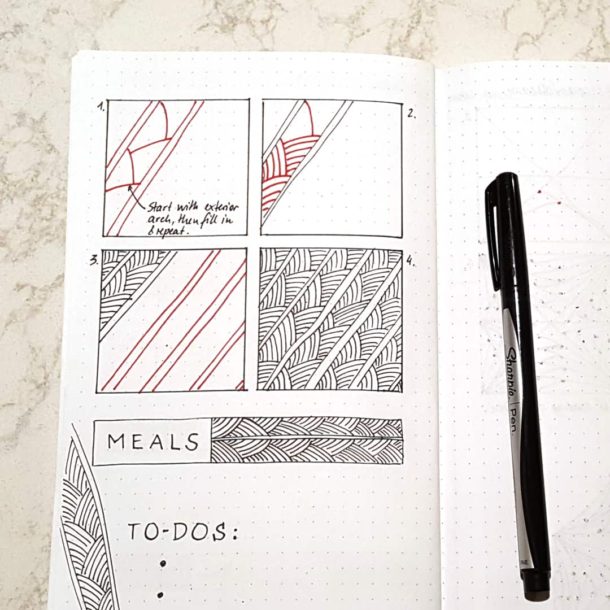 1.
2.
Start with exterior
arch, then fill in
& repeat.
3.
4.
MEALS
TO-DOS:
Sharpie Pen